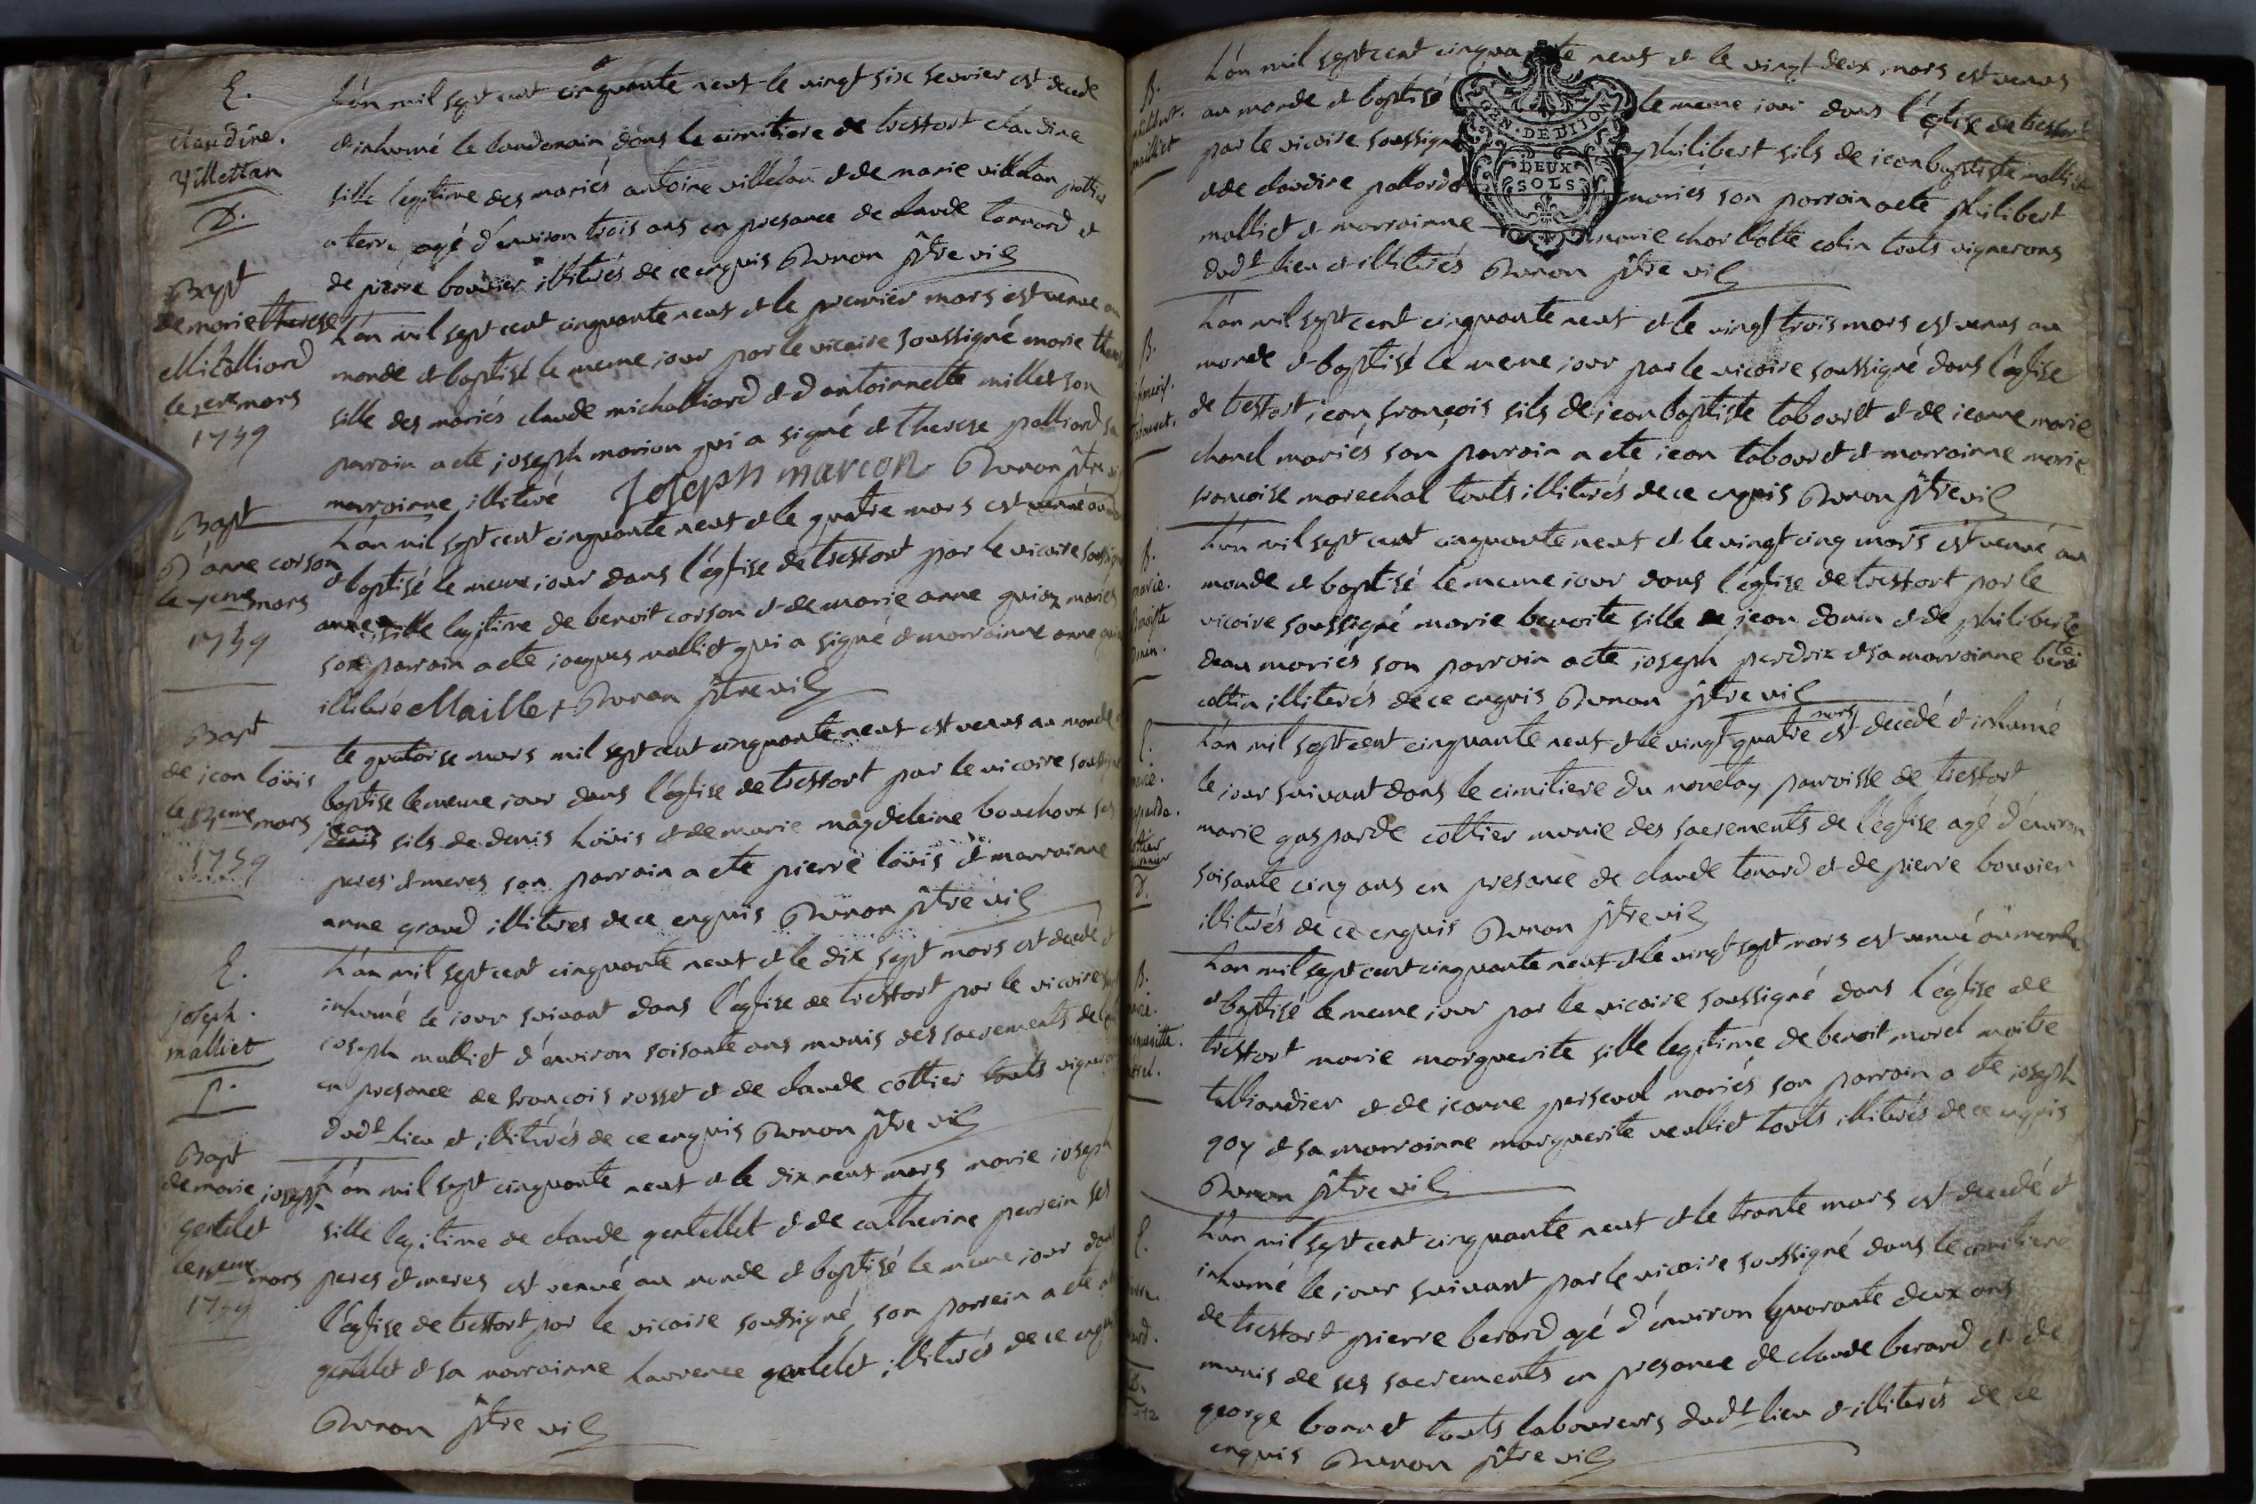 E.
claudine.
Villettan
D.
L'an mil sept cent cinquante neuf le vingt six fevrier est decede
et inhumé le landemain dans le cimitiere de tressort claudine
fille legitime des mariés antoine villetan et de marie villetan
a terre, agé d'environ trois ans en presance de claude tonnard et
de pierre bouvier illiterés de ce enquis Buron ptre vic
Bapt
de marie therese
Michalliard
le 1er mars
1759
L'an mil sept cent cinquante neuf et le premier mars est venue au
monde et baptisé le meme jour par le vicaire soussigné marie therese
fille des mariés claude michalliard et d'antoinnette millet son
parrain a eté joseph marion qui a signé et therese palliard sa
marrainne illiteré Joseph marion Buron ptre vic
Bapt
D'anne corson
le 4eme mars
1759
L'an mil sept cent cinquante neuf et le quatre mars est venné au monde
et baptisé le meme jour dans l'église de tressort par le vicaire soussigné
anne fille legitime de benoit corson et de marie anne guioz mariés
son parrain a eté jacques malliet qui a signé et marrainne anne
illiterée Maillet Buron ptre vic
Bapt
de jean loüis
le 14eme mars
1759
le quatorse mars mil sept cent cinquante neuf est venus au monde et
baptisé le meme jour dans l'église de tressort par le vicaire soussigné
jean
denis fils de denis loüis et de marie magdeleine bouchoux ses
peres et meres son parrain a eté pierre loüis et marrainne
anne grand illiteres de ce enquis Buron ptre vic
E.
joseph.
malliet
P.
L'an mil sept cent cinquante neuf et le dix sept mars est decedé et
inhumé le jour suivant dans l'église de tressort par le vicaire
joseph malliet d'environ soisante ans munis des sacrements de
en presance de françois rosset et de claude cottier touts vignerons
dudt lieu et illiterés de ce enquis Buron ptre vic
Bapt
de marie joseph
gentelet
le 19eme mars
1759
L'an mil sept cinquante neuf et le dix neuf mars marie joseph
fille legitime de claude gentellet et de catherine perrein ses
peres et meres est venné au monde et baptisé le meme jour dans
l'église de tressort par le vicaire soussigné, son parrein a eté
gentelet et sa marrainne laurence gentelet illiterés de ce enquis
Buron ptre vic
B.
malliet
L'an mil sept cent cinquante neuf et le vingt deux mars est venus
au monde et baptisé le meme jour dans l'église de tressort
par le vicaire soussigné philibert fils de jean baptiste malliet
et de claudine pallordet mariés son parrain a eté philibert
malliet et marrainne marie charllotte colin touts vignerons
dudt lieu et illiterés Buron ptre vic
GEN. DE DIJON
DEUX
SOLS
B.
L'an mil sept cent cinquante neuf et le vingt trois mars est venus au
monde et baptisé le meme jour par le vicaire soussigné dans l'église
de tressort jean, françois fils de jean baptiste tabouret et de jeanne marie
chanel mariés son parrain a eté jean tabouret et marrainne marie
françoise marechal touts illiterés de ce enquis Buron ptre vic
B.
marie.
L'an mil sept cent cinquante neuf et le vingt cinq mars est venné au
monde et baptisé le meme jour dans l'église de tressort par le
vicaire soussigné marie benoite fille de jean donin et de philiberte
deau mariés son parrain a eté joseph perdrix et sa marrainne benoite
cottin illiterés de ce enquis Buron ptre vic
D.
L'an mil sept cent cinquante neuf et le vingt quatre mars est decedé et inhumé
le jour suivant dans le cimitiere du mouetay parroisse de tressort
marie gasparde cottier munie des sacrements de l'église agé d'environ
soisante cinq ans en presance de claude tonard et de pierre bouvier
illiterés de ce enquis Buron ptre vic
B.
L'an mil sept cent cinquante neuf et le vingt sept mars est venné au monde
et baptisé le meme jour par le vicaire soussigné dans l'église de
tressort marie marguerite fille legitime de benoit morel maitre
talliandier et de jeanne poiseval mariés son parrain a eté joseph
goy et sa marrainne marguerite veulliet touts illiterés de ce enquis
Buron ptre vic
L'an mil sept cent cinquante neuf et le trante mars est decedé et
inhumé le jour suivant par le vicaire soussigné dans le cimitiere
de tressort pierre berard agé d'environ quarante deux ans
munis de ses sacrements en presance de claude berard et de
george bonnet touts laboureurs dudt lieu et illiterés de ce
enquis Buron ptre vic